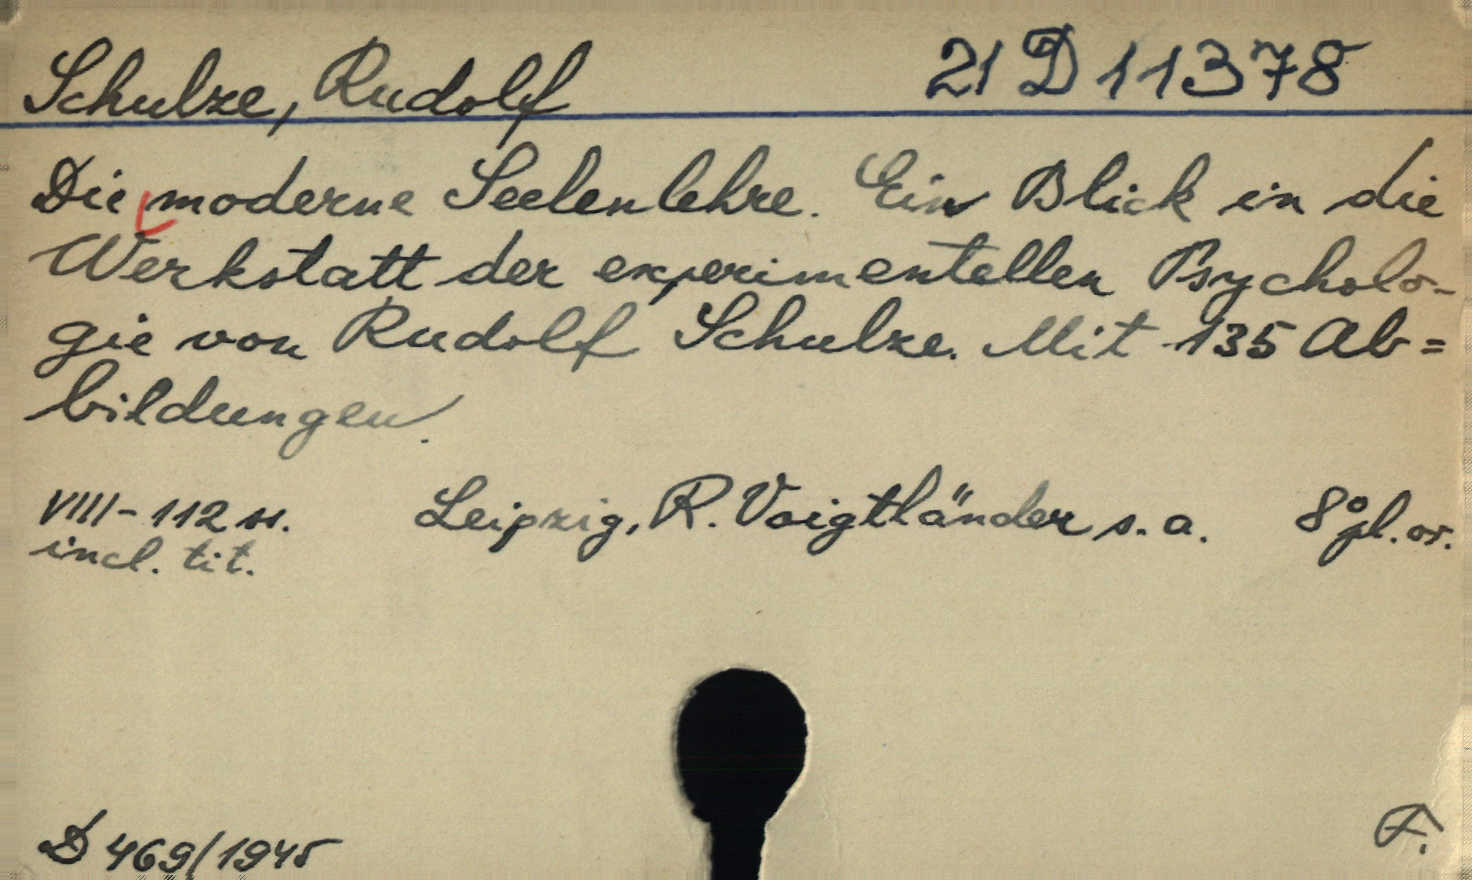 Schulze, Rudolf 21 D 11378
Die moderne Seelenlehre. Ein Blick in die
Werkstatt der experimentellen Psycholo-
gie von Rudolf Schulze. Mit 135 Ab=
bildungen.
VIII-112 ss. Leipzig, R. Voigtländer s. a. 8° pl. or.
incl. tit.
D 469/1945 F.